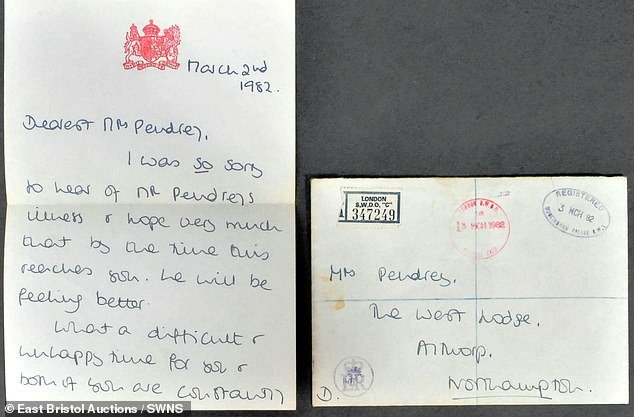 March 2nd
1982.
Dearest Mrs Pendrey,
I was so sorry
to hear of Mr Pendrey's
illness & hope very much
that by the time this
reaches you. he will be
feeling better.
What a difficult &
unhappy time for you &
both of you are constantly
LONDON
S.W.D.O, "C"
347249
3 MCH 1982
REGISTERED
3 MCH 82
BUCKINGHAM PALACE S.W.1.
Mrs Pendrey,
The West Lodge,
Althorp,
Northampton.
D.
© East Bristol Auctions / SWNS